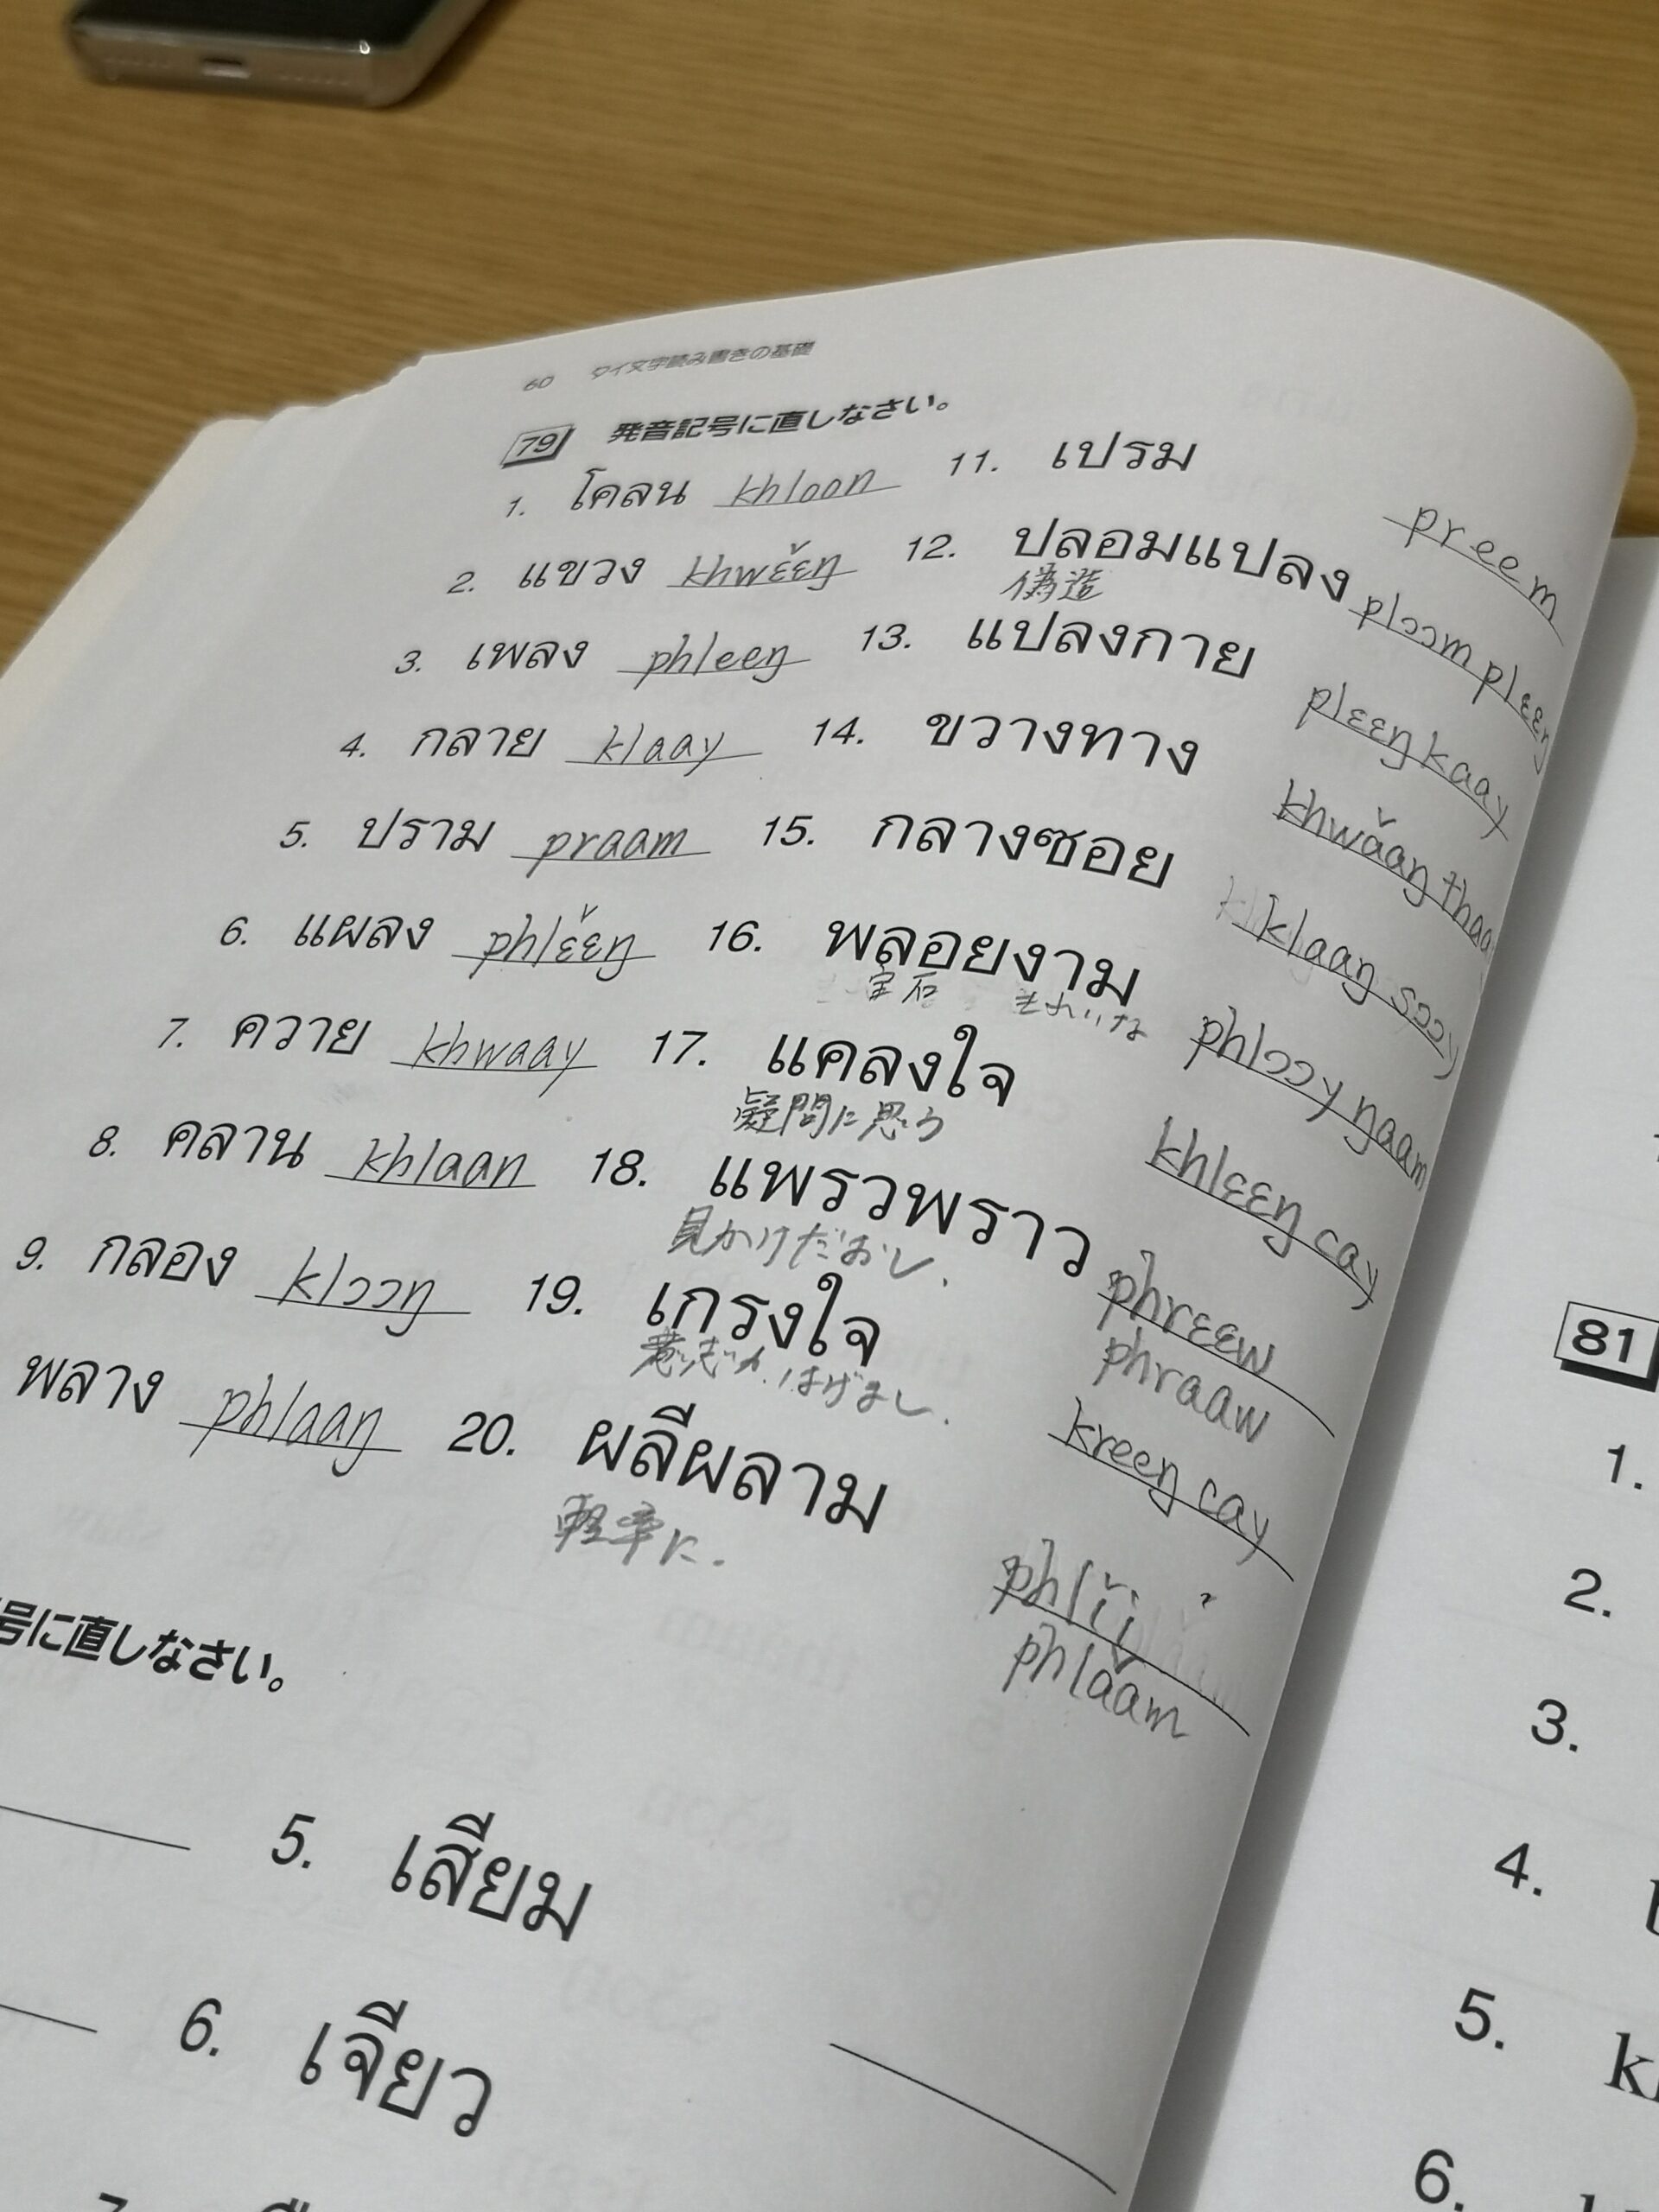 60 タイ文字読み書きの基礎
79 発音記号に直しなさい。
1. โคลน khloon
2. แขวง khwɛ̌ɛŋ
3. เพลง phleeŋ
4. กลาย klaay
5. ปราม praam
6. แผลง phlɛ̌ɛŋ
7. ควาย khwaay
8. คลาน khlaan
9. กลอง klɔɔŋ
พลาง phlaaŋ
11. เปรม preem
12. ปลอมแปลง plɔɔm plɛɛŋ
偽造
13. แปลงกาย plɛɛŋ kaay
14. ขวางทาง khwǎaŋ thaa
15. กลางซอย klaaŋ sɔɔy
16. พลอยงาม phlɔɔy ŋaam
宝石 きれいな
17. แคลงใจ khlɛɛŋ cay
疑問に思う
18. แพรวพราว phrɛɛw
phraaw
見かけだおし.
19. เกรงใจ kreeŋ cay
20. ผลีผลาม phlǐi
phlǎam
軽率に.
号に直しなさい。
5. เสียม
6. เจียว
7.
81
1.
2.
3.
4.
5. k
6.